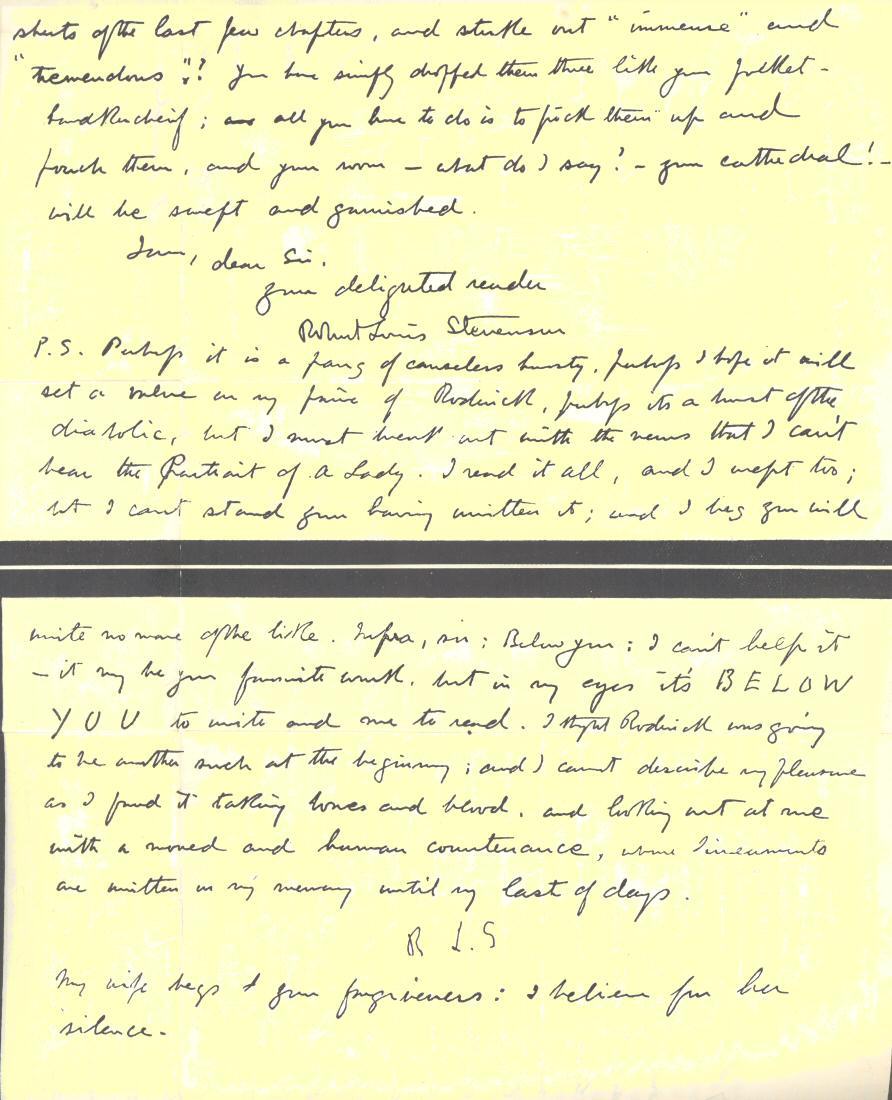 sheets of the last few chapters, and strike out "immense" and
"tremendous"? You have simply dropped them there like your pocket-
handkerchief; all you have to do is to pick them up and
pouch them, and your room – what do I say? – your cathedral! –
will be swept and garnished.
I am, dear Sir,
your delighted reader
Robert Louis Stevenson
P.S. Perhaps it is a pang of causeless honesty, perhaps I hope it will
set a value on my praise of Roderick, perhaps its a burst of the
diabolic, but I must break out with the news that I can't
bear the Portrait of a Lady. I read it all, and I wept too;
but I can't stand your having written it; and I beg you will
write no more of the like. Infra, sir; Below you: I can't help it
– it may be your favourite work, but in my eyes it's BELOW
YOU to write and me to read. I thought Roderick was going
to be another such at the beginning; and I cannot describe my pleasure
as I found it taking bones and blood, and looking out at me
with a moved and human countenance, whose lineaments
are written in my memory until my last of days.
R L.S
My wife begs your forgiveness: I believe for her
silence.